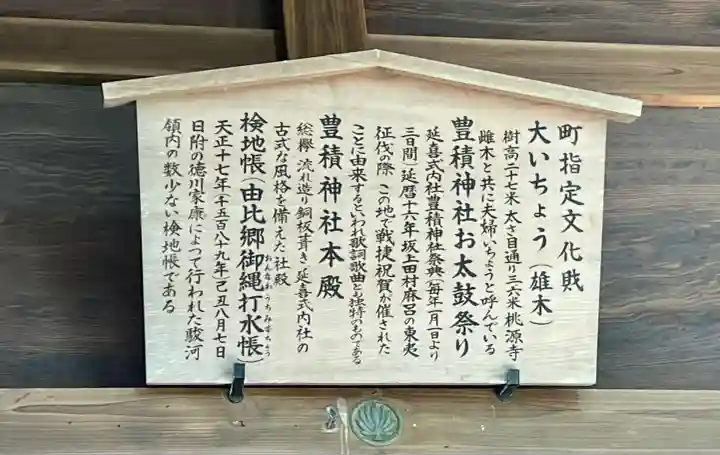 町指定文化財
大いちょう(雄木)
樹高二十七米 太さ目通り三六米 桃源寺
雌木と共に夫婦いちょうと呼んでいる
豊積神社お太鼓祭り
延喜式内社豊積神社祭典(毎年一月一日より
三日間)延暦十六年坂上田村麻呂の東夷
征伐の際 この地で戦捷祝賀が催された
ことに由来するといわれ歌詞歌曲とも独特のものである
豊積神社本殿
総欅 流れ造り銅板葺き 延喜式内社の
古式な風格を備えた社殿
検地帳(由比郷御縄打水帳)
おんなわうちみずちょう
天正十七年(千五百八十九年)己丑八月七日
日附の徳川家康によって行われた駿河
領内の数少ない検地帳である